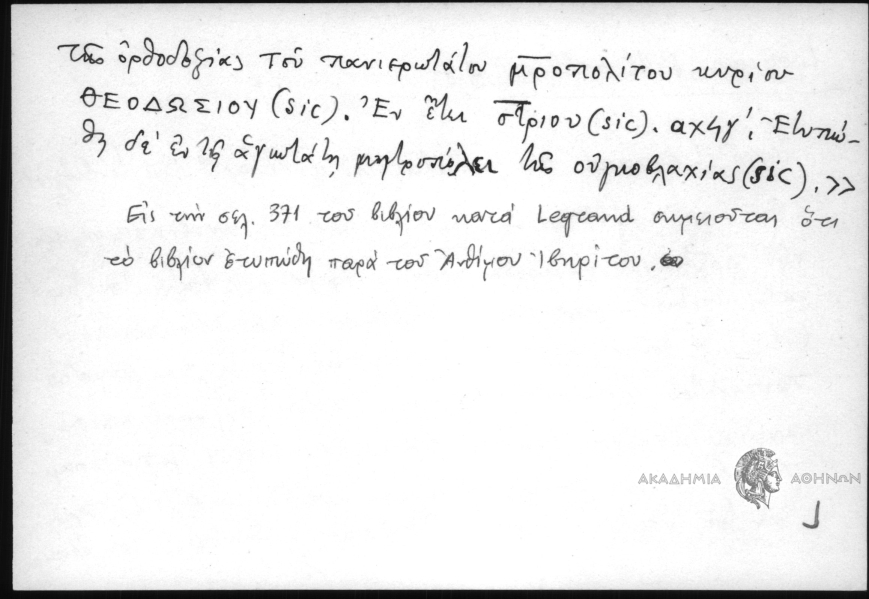 τῆς ὀρθοδοξίας τοῦ πανιερωτάτου μ̅ρ̅οπολίτου κυρίου
ΘΕΟΔΩΣΙΟΥ (sic). Ἐν ἔτει σ̅τ̅ριου (sic). αχϟγ'. Ἐτυπώ-
θη δὲ ἐν τῇ ἁγιωτάτῃ μητροπόλει τῆς οὐγκοβλαχίας (sic). »
Εἰς τὴν σελ. 371 τοῦ βιβλίου κατὰ Legrand σημειοῦται ὅτι
τὸ βιβλίον ἐτυπώθη παρὰ τοῦ Ἀνθίμου Ἰβηρίτου.
ΑΚΑΔΗΜΙΑ ΑΘΗΝΩΝ